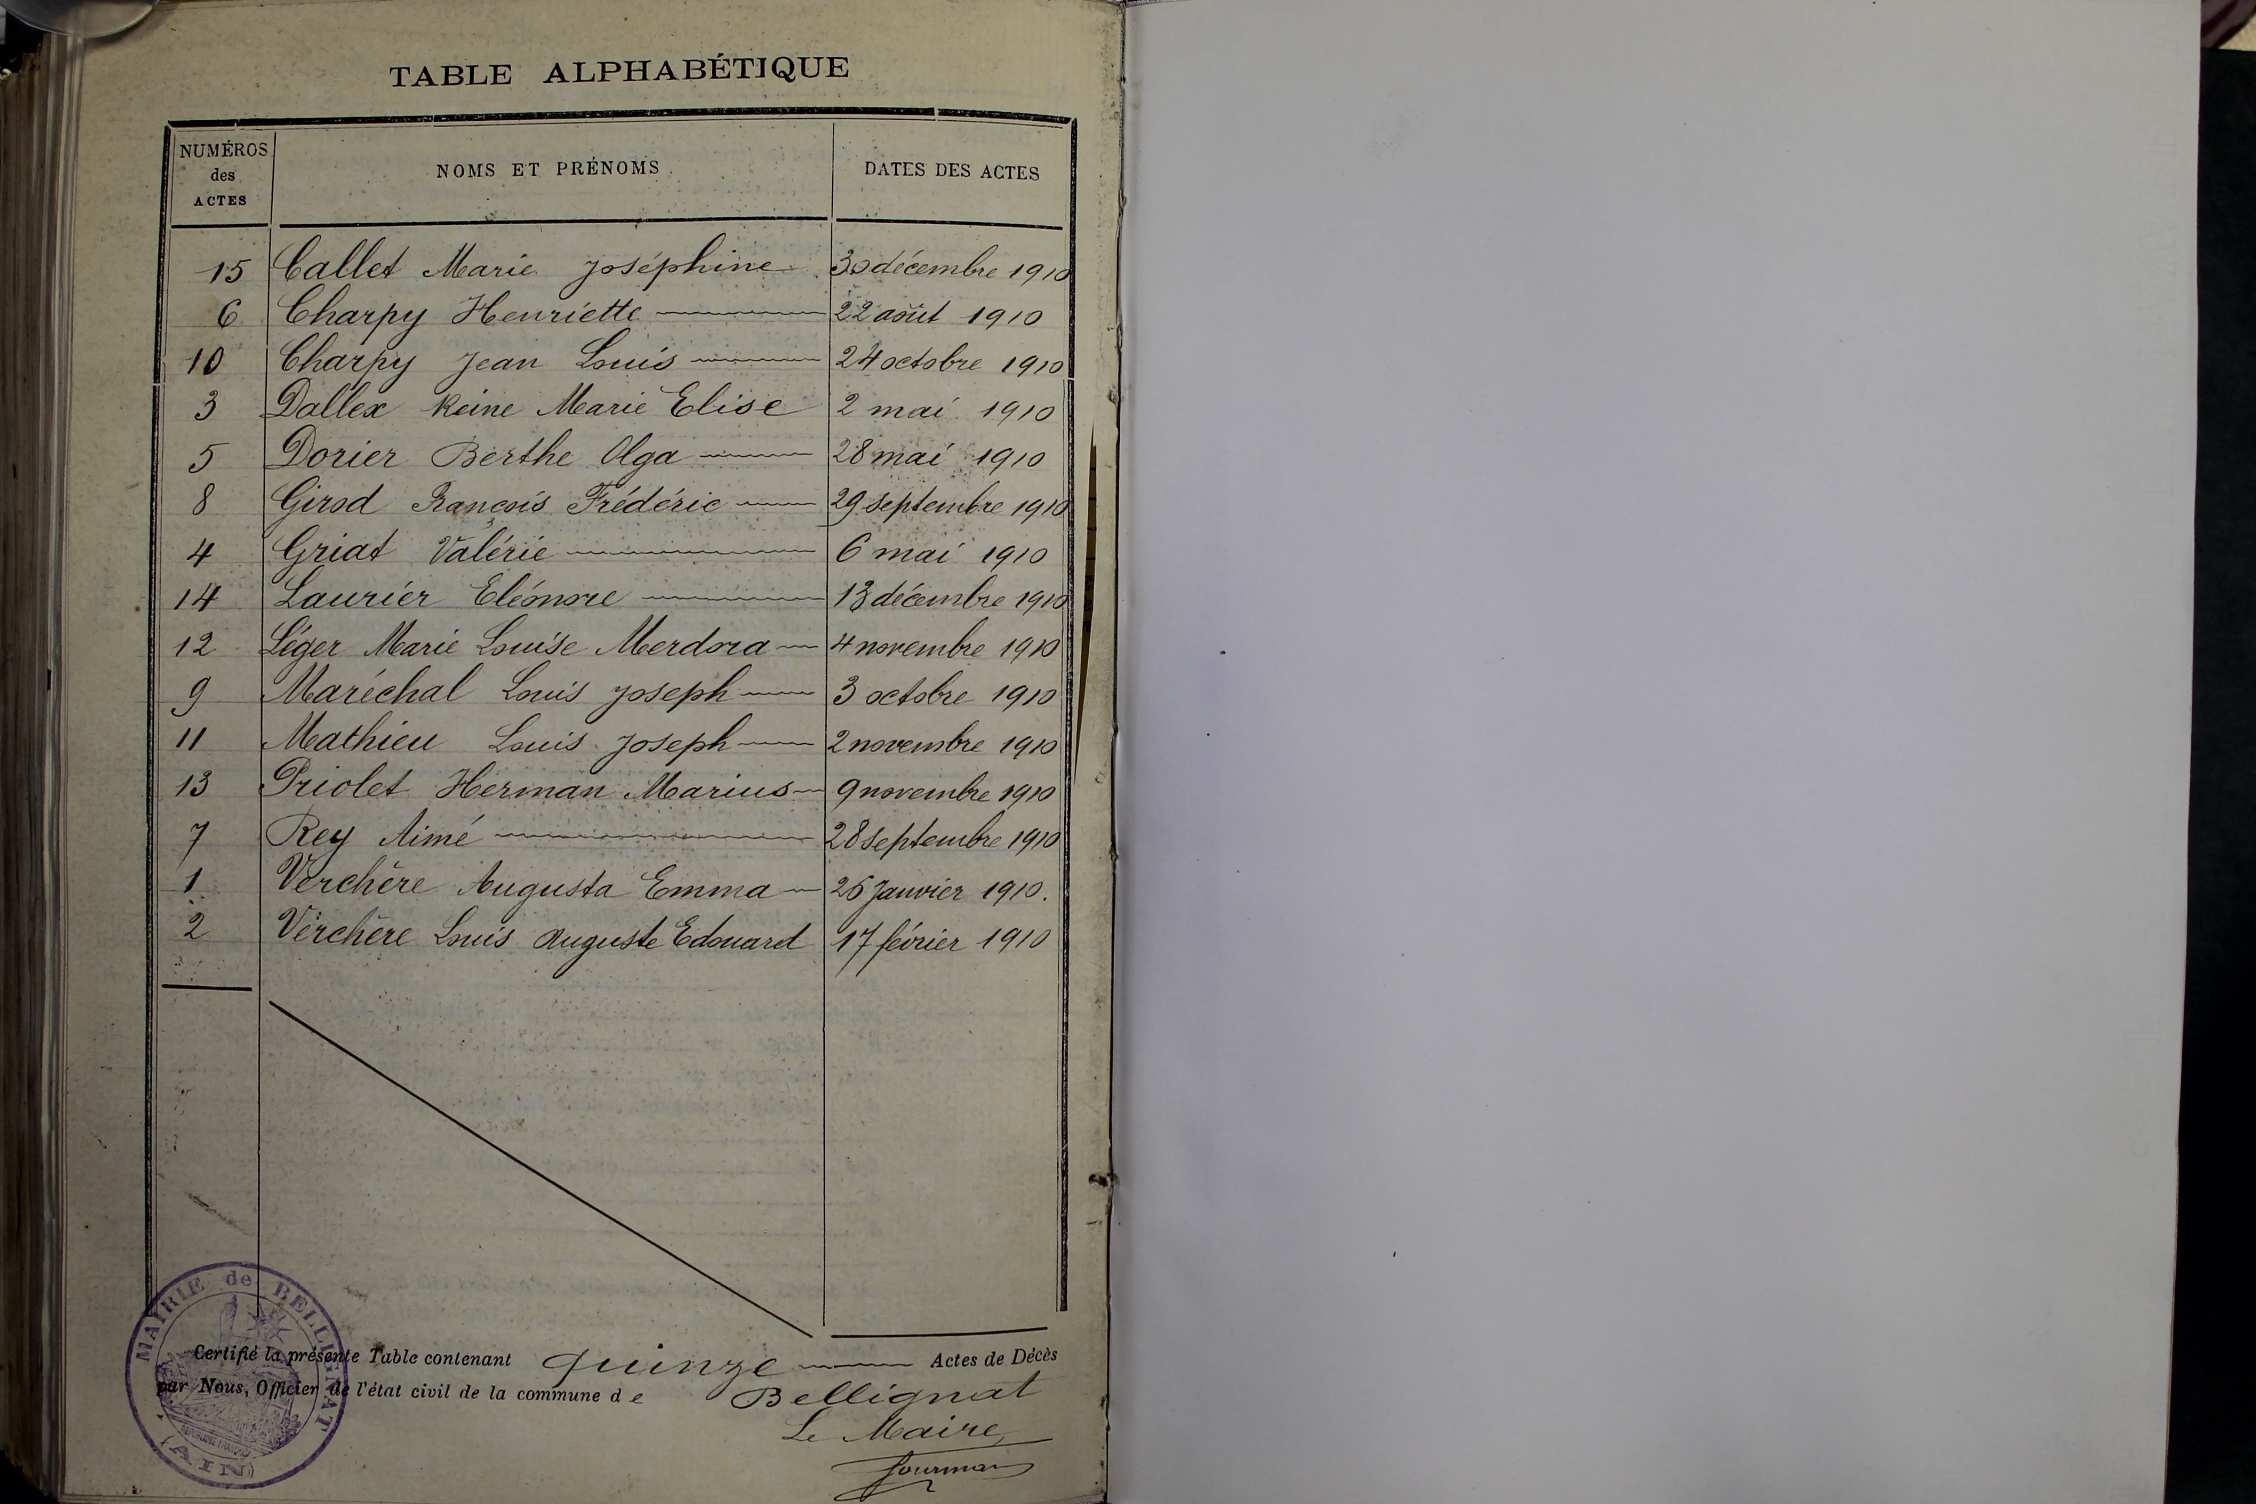 TABLE ALPHABÉTIQUE
NUMÉROS des ACTES NOMS ET PRÉNOMS DATES DES ACTES
15 Callet Marie Joséphine 30 décembre 1910
6 Charpy Henriette 22 août 1910
10 Charpy Jean Louis 24 octobre 1910
3 Dallex Reine Marie Elise 2 mai 1910
5 Dorier Berthe Olga 28 mai 1910
8 Girod François Frédéric 29 septembre 1910
4 Griat Valérie 6 mai 1910
14 Laurier Eléonore 13 décembre 1910
12 Léger Marie Louise Merdora 4 novembre 1910
9 Maréchal Louis Joseph 3 octobre 1910
11 Mathieu Louis Joseph 2 novembre 1910
13 Priolet Herman Marius 9 novembre 1910
7 Rey Aimé 28 septembre 1910
1 Verchère Augusta Emma 26 Janvier 1910.
2 Verchère Louis Auguste Edouard 17 février 1910
Certifié la présente Table contenant quinze Actes de Décès
par Nous, Officier de l'état civil de la commune de Bellignat
Le Maire
MAIRIE de BELLIGNAT
(AIN)